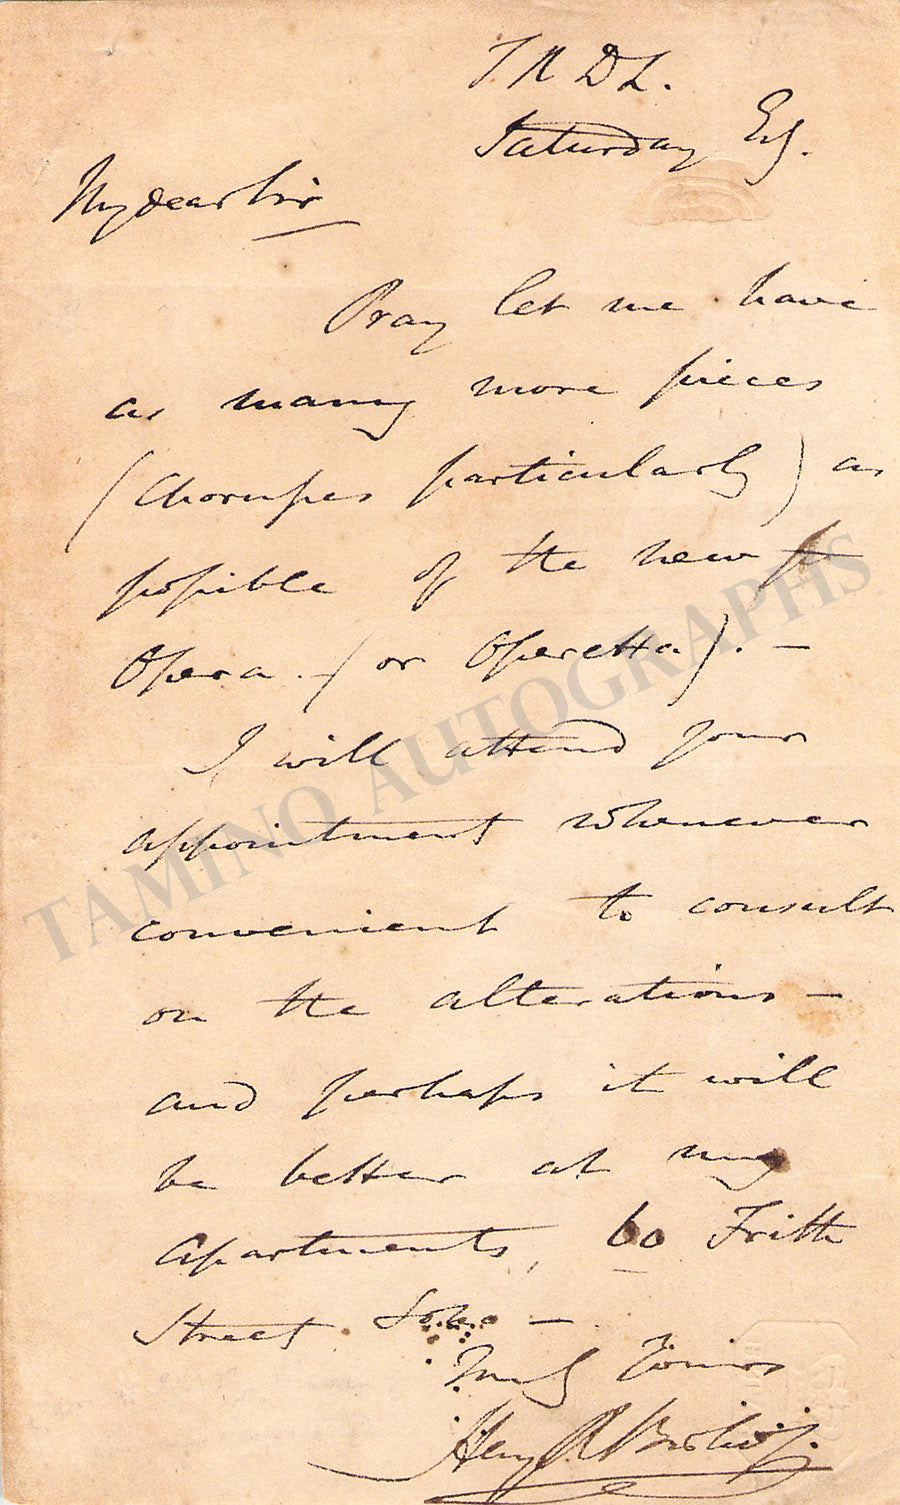 T R D L.
Saturday Evg.
My dear Sir
Pray let me have
as many more pieces
(Chorusses particularly) as
possible of the new
Opera (or Operetta). —
I will attend your
appointment whenever
convenient to consult
on the alterations —
and perhaps it will
be better at my
Apartments, 60 Frith
Street Soho —
Truly Yours
Henry R Bishop.
TAMINO AUTOGRAPHS